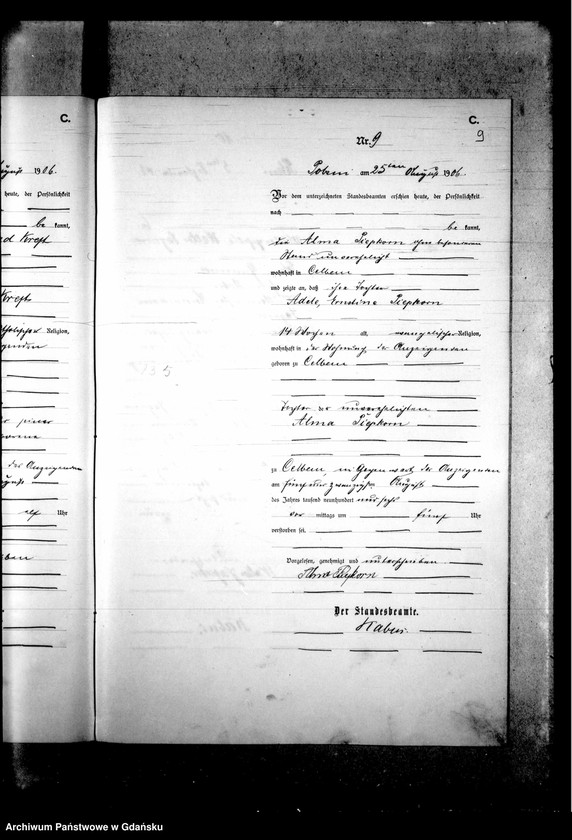 C.
ugust 1906.
heute, der Persönlichkeit
be kannt,
Religion,
der Anzeigenden
elf Uhr
C.
9
Nr. 9
am 25ten August 1906.
Vor dem unterzeichneten Standesbeamten erschien heute, der Persönlichkeit
nach
be kannt,
die Alma Piepkorn ohne besonderen
Stand unverehelicht
wohnhaft in Celbau
und zeigte an, daß ihre Tochter
Adele, Ernstine Piepkorn
14 Wochen alt, evangelischer Religion,
wohnhaft in der Wohnung der Anzeigenden
geboren zu Celbau
Tochter der unverehelichten
Alma Piepkorn
zu Celbau, in Gegenwart der Anzeigenden
am fünfundzwanzigsten August
des Jahres tausend neunhundert und sechs
vor mittags um fünf Uhr
verstorben sei.
Vorgelesen, genehmigt und unterschrieben
Alma Piepkorn
Der Standesbeamte.
Archiwum Państwowe w Gdańsku